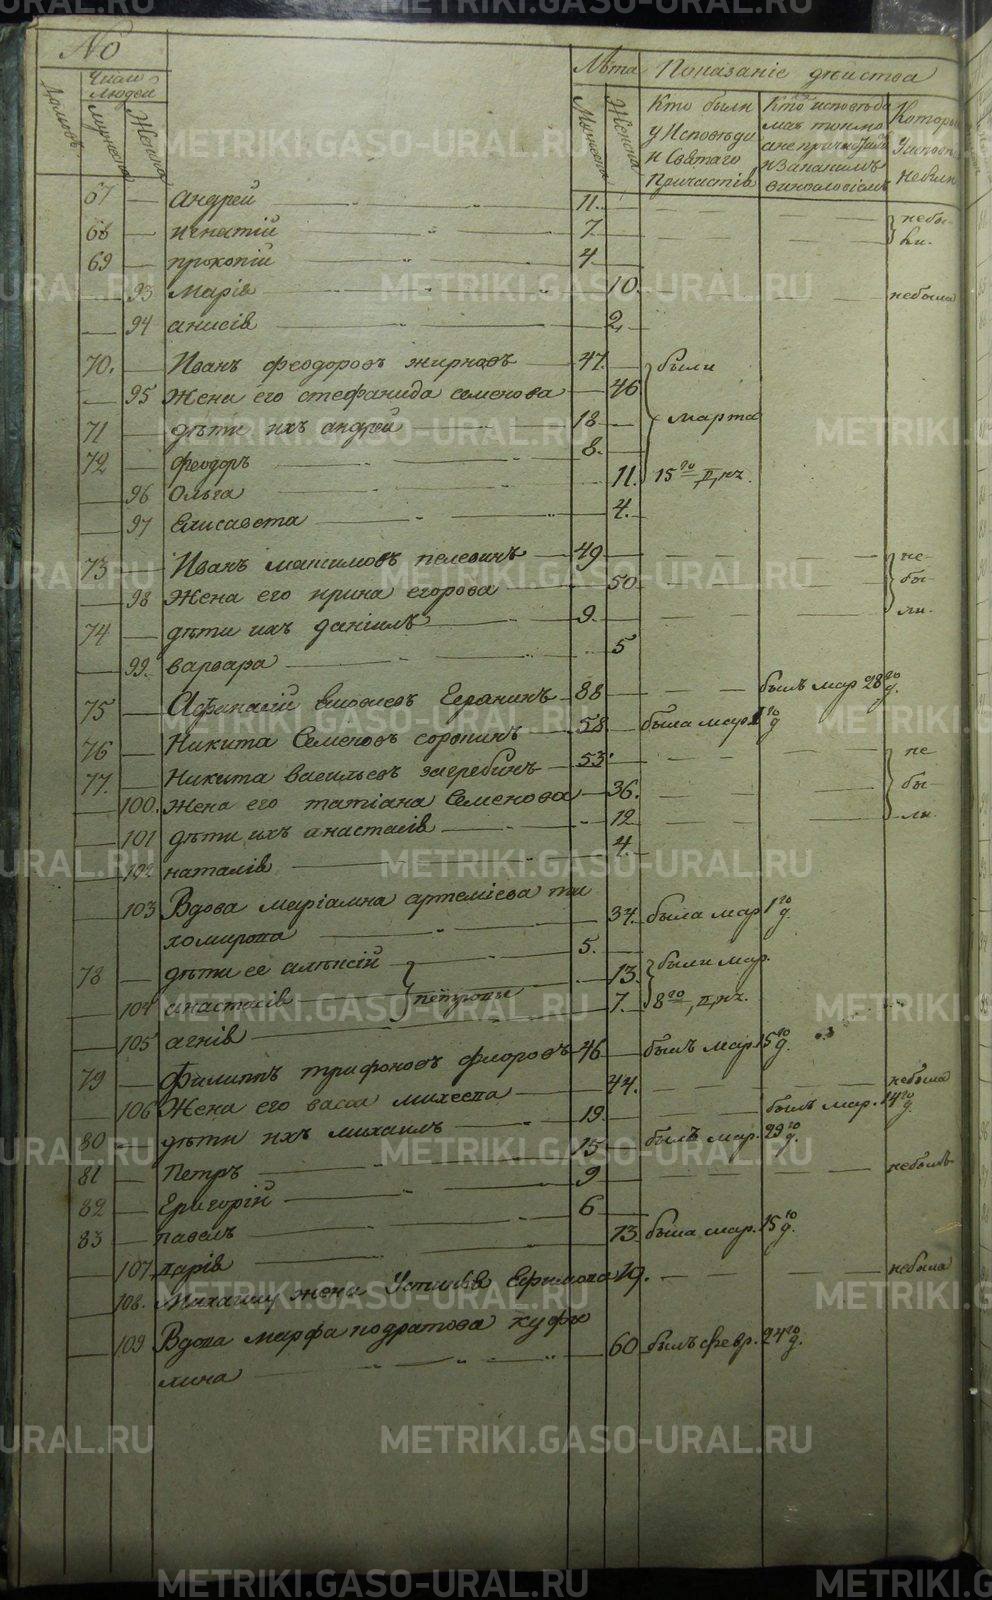 №
Число людей
Лѣта Показаніе дѣйства
Домовъ
Мужеска
Женска
Мужеска
Женска
Кто были у Исповѣди и Святаго Причастія
Кто исповѣдо
валъ токмо
а не причащал
и за какимъ
винословіемъ
Которы
Исповѣ
небыли
67 — Андрей — „ 11. — — — небы-
68 — игнатій — „ 7. — — — ли.
69 — прокопій — „ 4 —
— 93 марія — „ 10. — — небыла
— 94 анисія — „ 2,
70. — Иванъ феодоровъ жирновъ — 47. — были
— 95 Жена его стефанида семенова — 46
71 — дѣти ихъ андрей — 18 — марта
72 — феодоръ — „ 8. —
— 96 Ольга — „ 11. 15го д, нь.
— 97 Елисавета — „ 4.
73 — Иванъ максимовъ пелевинъ — 49 — — — не-
— 98 Жена его ирина егорова — 50 — — бы-
74 — дѣти ихъ даніилъ — 9. — — — ли.
— 99. варвара — „ 5
75 — Афанасій — 88 — — — былъ мар 28го д.
76 — Никита Семеновъ сорокинъ — 58. — была мар. 1го д
77. — Никита васильевъ загребинъ — 53 — — — не
— 100. Жена его татіана Семенова — 36. — — бы-
— 101 дѣти ихъ анастасія — „ 12 — — ли.
— 102 наталія — „ 4.
— 103 Вдова маріамна артеміева ти
хомирова — „ 34. была мар 1го д.
78 — дѣти ее алексій 5. — были мар.
— 104 анастасія петровы 13. 8го, д, нь.
— 105 агнія — „ 7.
79 — Филиппъ трифоновъ флоровъ 46 — былъ мар. 15го д.
— 106 Жена его васса михеева — 44. — — небыла
80 — дѣти ихъ михаилъ — 19. — — былъ мар. 14го д.
81 — Петръ — „ 15 былъ мар. 29го д.
82 — Григорій — „ 9 — — — небылъ
83 — павелъ — „ 6 —
— 107 дарія — „ 13. была мар. 15го д.
— 108. Михаилу жена Устинія Ефимова 19. — — небыла
— 109 Вдова марфа кодратова куфи
мина — „ „ „ 60 былъ февр. 24го д.
METRIKI.GASO-URAL.RU